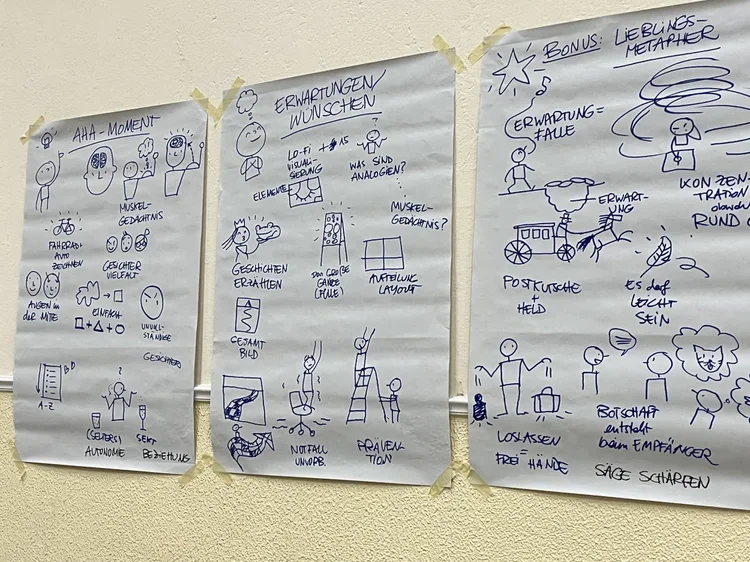 AHA-MOMENT
MUSKEL-
GEDÄCHTNIS
FAHRRAD/
AUTO
ZEICHNEN
GESICHTER
VIELFALT
AUGEN in
der MITE
EINFACH
UNVOLL-
STÄNDIGE
GESICHTER
A-Z
(SELTERS)
SEKT
AUTONOMIE
BEZIEHUNG
ERWARTUNGEN/
WÜNSCHEN
LO-FI
VISUALI-
SIERUNG
+ 15
WAS SIND
ANALOGIEN?
ELEMENTE
MUSKEL-
GEDÄCHTNIS?
GESCHICHTEN
ERZÄHLEN
DAS GROßE
GANZE
(FÜLLE)
AUFTEILUNG
LAYOUT
GESAMT
BILD
NOTFALL
UNVORB.
PRÄVEN-
TION
BONUS: LIEBLINGS-
METAPHER
ERWARTUNG =
FALLE
KONZEN-
TRATION
RUND
ERWART-
UNG
POSTKUTSCHE
+
HELD
Es darf
LEICHT
SEIN
LOSLASSEN
=
FREIE HÄNDE
BOTSCHAFT
entsteht
beim EMPFÄNGER
SÄGE SCHÄRFEN